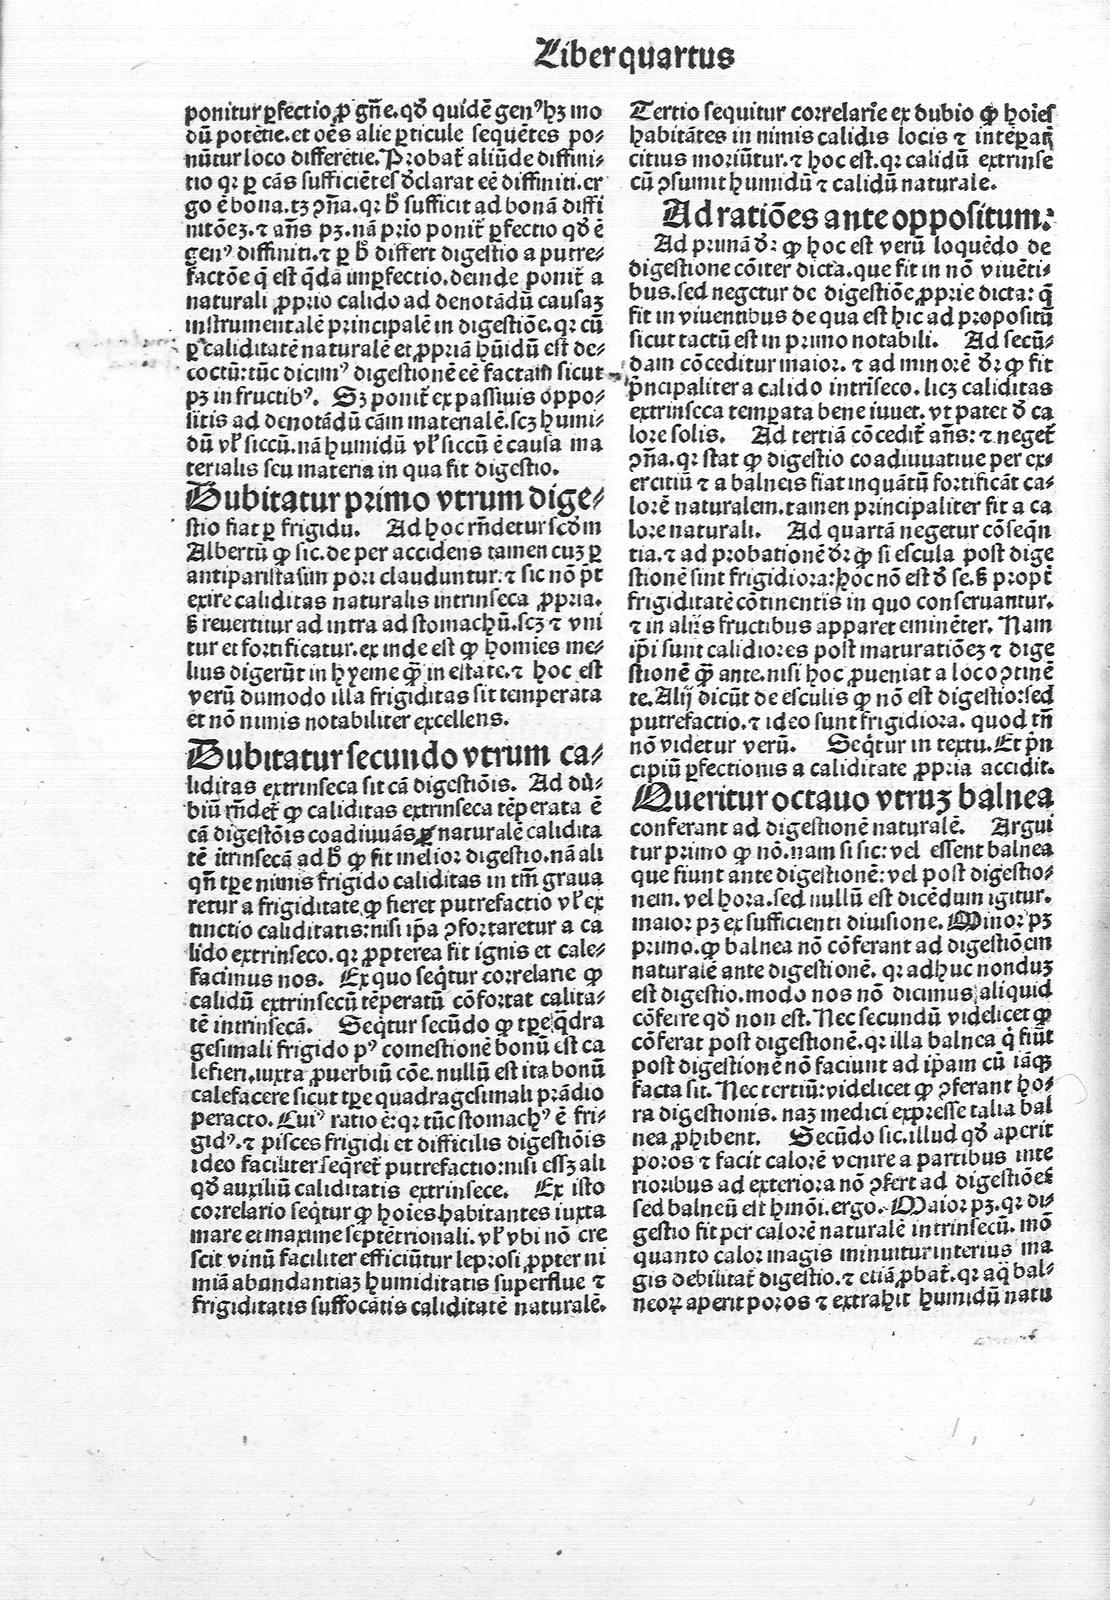 Liber quartus
ponitur ꝑfectio ꝓ gñe. qđ quidẽ genꝰ hꝫ mo
dũ potẽtie. et oẽs alie ꝑticule sequẽtes po⸗
nũtur loco differẽtie. Probat̃ aliũde diffini⸗
tio qꝛ ꝑ cãs sufficiẽtes đclarat eẽ diffiniti. er
go ẽ bona. tꝫ ꝯña. qꝛ ħ sufficit ad bonã diffi
nitõeꝫ. ⁊ añs pꝫ. nã prio ponit̃ ꝑfectio qđ ẽ
genꝰ diffiniti. ⁊ ꝑ ħ differt digestio a putre⸗
factõe q̃ est q̃dã imꝑfectio. deinde ponit̃ a
naturali ꝓprio calido ad denotãdũ causaꝫ
instrumentalẽ principalẽ in digestiõe. qꝛ cũ
ꝑ caliditatẽ naturalẽ et ꝓpriã hũidũ est de⸗
coctũ: tũc dicimꝰ digestionẽ eẽ factam sicut
pꝫ in fructibꝰ. Sꝫ ponit̃ ex passiuis oppo⸗
sitis ad denotãdũ cãm materialẽ. scꝫ humi⸗
dũ vl̕ siccũ. nã humidũ vl̕ siccũ ẽ causa ma
terialis seu materia in qua fit digestio.
Dubitatur primo vtrum dige⸗
stio fiat ꝑ frigidũ. Ad hoc rñdetur scđm
Albertũ ꝙ sic. de per accidens tamen cuꝫ ꝑ
antiparistasim pori clauduntur. ⁊ sic nõ p̃t
exire caliditas naturalis intrinseca ꝓpria.
ß reuertitur ad intra ad stomachũ. scꝫ ⁊ vni
tur et fortificatur. ex inde est ꝙ homies me⸗
lius digerũt in hyeme q̃̃ in estate. ⁊ hoc est
verũ dumodo illa frigiditas sit temperata
et nõ nimis notabiliter excellens.
Dubitatur secundo vtrum ca⸗
liditas extrinseca sit cã digestiõis. Ad dũ⸗
biũ rñdet̃ ꝙ caliditas extrinseca tẽperata ẽ
cã digestõis coadiuuãs ꝑ naturalẽ calidita
tẽ itrinsecã ad ħ ꝙ fit melior digestio. nã ali
qñ tꝑe nimis frigido caliditas in tm̃ graua
retur a frigiditate ꝙ fieret putrefactio vl̕ ex
tinctio caliditatis: nisi ip̃a ꝯfortaretur a ca
lido extrinseco. qꝛ ꝓpterea fit ignis et cale⸗
facimus nos. Ex quo seq̃tur correlarie ꝙ
calidũ extrinsecũ tẽperatũ cõfortat calita⸗
tẽ intrinsecã. Seq̃tur secũdo ꝙ tꝑe q̃dra
gesimali frigido pꝰ comestionẽ bonũ est ca
lefieri. iuxta ꝓuerbiũ cõe. nullũ est ita bonũ
calefacere sicut tꝑe quadragesimali prãdio
peracto. Cuiꝰ ratio ẽ: qꝛ tũc stomachꝰ ẽ fri⸗
gidꝰ. ⁊ pisces frigidi et difficilis digestiõis
ideo faciliter seq̃ret̃ putrefactio: nisi essꝫ ali
qđ auxiliũ caliditatis extrinsece. Ex isto
correlario seq̃tur ꝙ hoies habitantes iuxta
mare et maxime septẽtrionali. vl̕ vbi nõ cre
scit vinũ faciliter efficiũtur leprosi ꝓpter ni
miã abundantiaꝫ humiditatis superflue ⁊
frigiditatis suffocãtis caliditatẽ naturalẽ.
Tertio sequitur correlarie ex dubio ꝙ hoies
habitãtes in nimis calidis locis ⁊ intẽꝑatꝭ
citius moriũtur. ⁊ hoc est. qꝛ calidũ extrinse
cũ ꝯsumit humidũ ⁊ calidũ naturale.
Ad ratiões ante oppositum:
Ad primã đr ꝙ hoc est verũ loquẽdo de
digestione cõiter dicta. que fit in nõ viuẽti⸗
bus. sed negetur de digestiõe ꝓprie dicta: q̃
fit in viuentibus de qua est hic ad propositũ
sicut tactũ est in primo notabili. Ad secũ⸗
dam cõceditur maior. ⁊ ad minorẽ đr ꝙ fit
p̃ncipaliter a calido intrĩseco. licꝫ caliditas
extrinseca temꝑata bene iuuet. vt patet đ ca
lore solis. Ad tertiã cõcedit̃ añs: ⁊ neget̃
ꝯña. qꝛ stat ꝙ digestio coadiuuatiue per ex⸗
ercitiũ ⁊ a balneis fiat inquãtũ fortificãt ca⸗
lorẽ naturalem. tamen principaliter fit a ca
lore naturali. Ad quartã negetur cõseq̃n
tia. ⁊ ad probationẽ đr ꝙ si escula post dige
stionẽ sint frigidiora: hoc nõ est đ se. ß propt̃
frigiditatẽ cõtinentis in quo conseruantur.
⁊ in alijs fructibus apparet eminẽter. Nam
ip̃i sunt calidiores post maturatiõeꝫ ⁊ dige
stionẽ q̃̃ ante. nisi hoc ꝓueniat a loco ꝯtinẽ
te. Alij dicũt de esculis ꝙ nõ est digestio: sed
putrefactio. ⁊ ideo sunt frigidiora. quod tñ
nõ videtur verũ. Seq̃tur in textu. Et p̃n
cipiũ ꝑfectionis a caliditate ꝓpria accidit.
Queritur octauo vtruꝫ balnea
conferant ad digestionẽ naturalẽ. Argui
tur primo ꝙ nõ. nam si sic: vel essent balnea
que fiunt ante digestionẽ: vel post digestio⸗
nem. vel hora. sed nullũ est dicẽdum igitur.
maior pꝫ ex sufficienti diuisione. Minor pꝫ
primo. ꝙ balnea nõ cõferant ad digestiõem
naturalẽ ante digestionẽ. qꝛ adhuc nonduꝫ
est digestio. modo nos nõ dicimus aliquid
cõferre qđ non est. Nec secundũ videlicet ꝙ
cõferat post digestionẽ. qꝛ illa balnea q̃ fiũt
post digestionẽ nõ faciunt ad ip̃am cũ iã ꝗꝫ
facta sit. Nec tertiũ: videlicet ꝙ ꝯferant ho⸗
ra digestionis. naꝫ medici expresse talia bal
nea ꝓhibent. Secũdo sic. illud qđ aperit
poros ⁊ facit calorẽ venire a partibus inte
rioribus ad exteriora nõ ꝯfert ad digestiões
sed balneũ est hmõi. ergo. Maior pꝫ. qꝛ di⸗
gestio fit per calorẽ naturalẽ intrinsecũ. mõ
quanto calor magis minuitur interius ma
gis debilitat̃ digestio. ⁊ etiã ꝓbat̃. qꝛ aq̃ bal⸗
neoꝝ aperit poros ⁊ extrahit humidũ natu